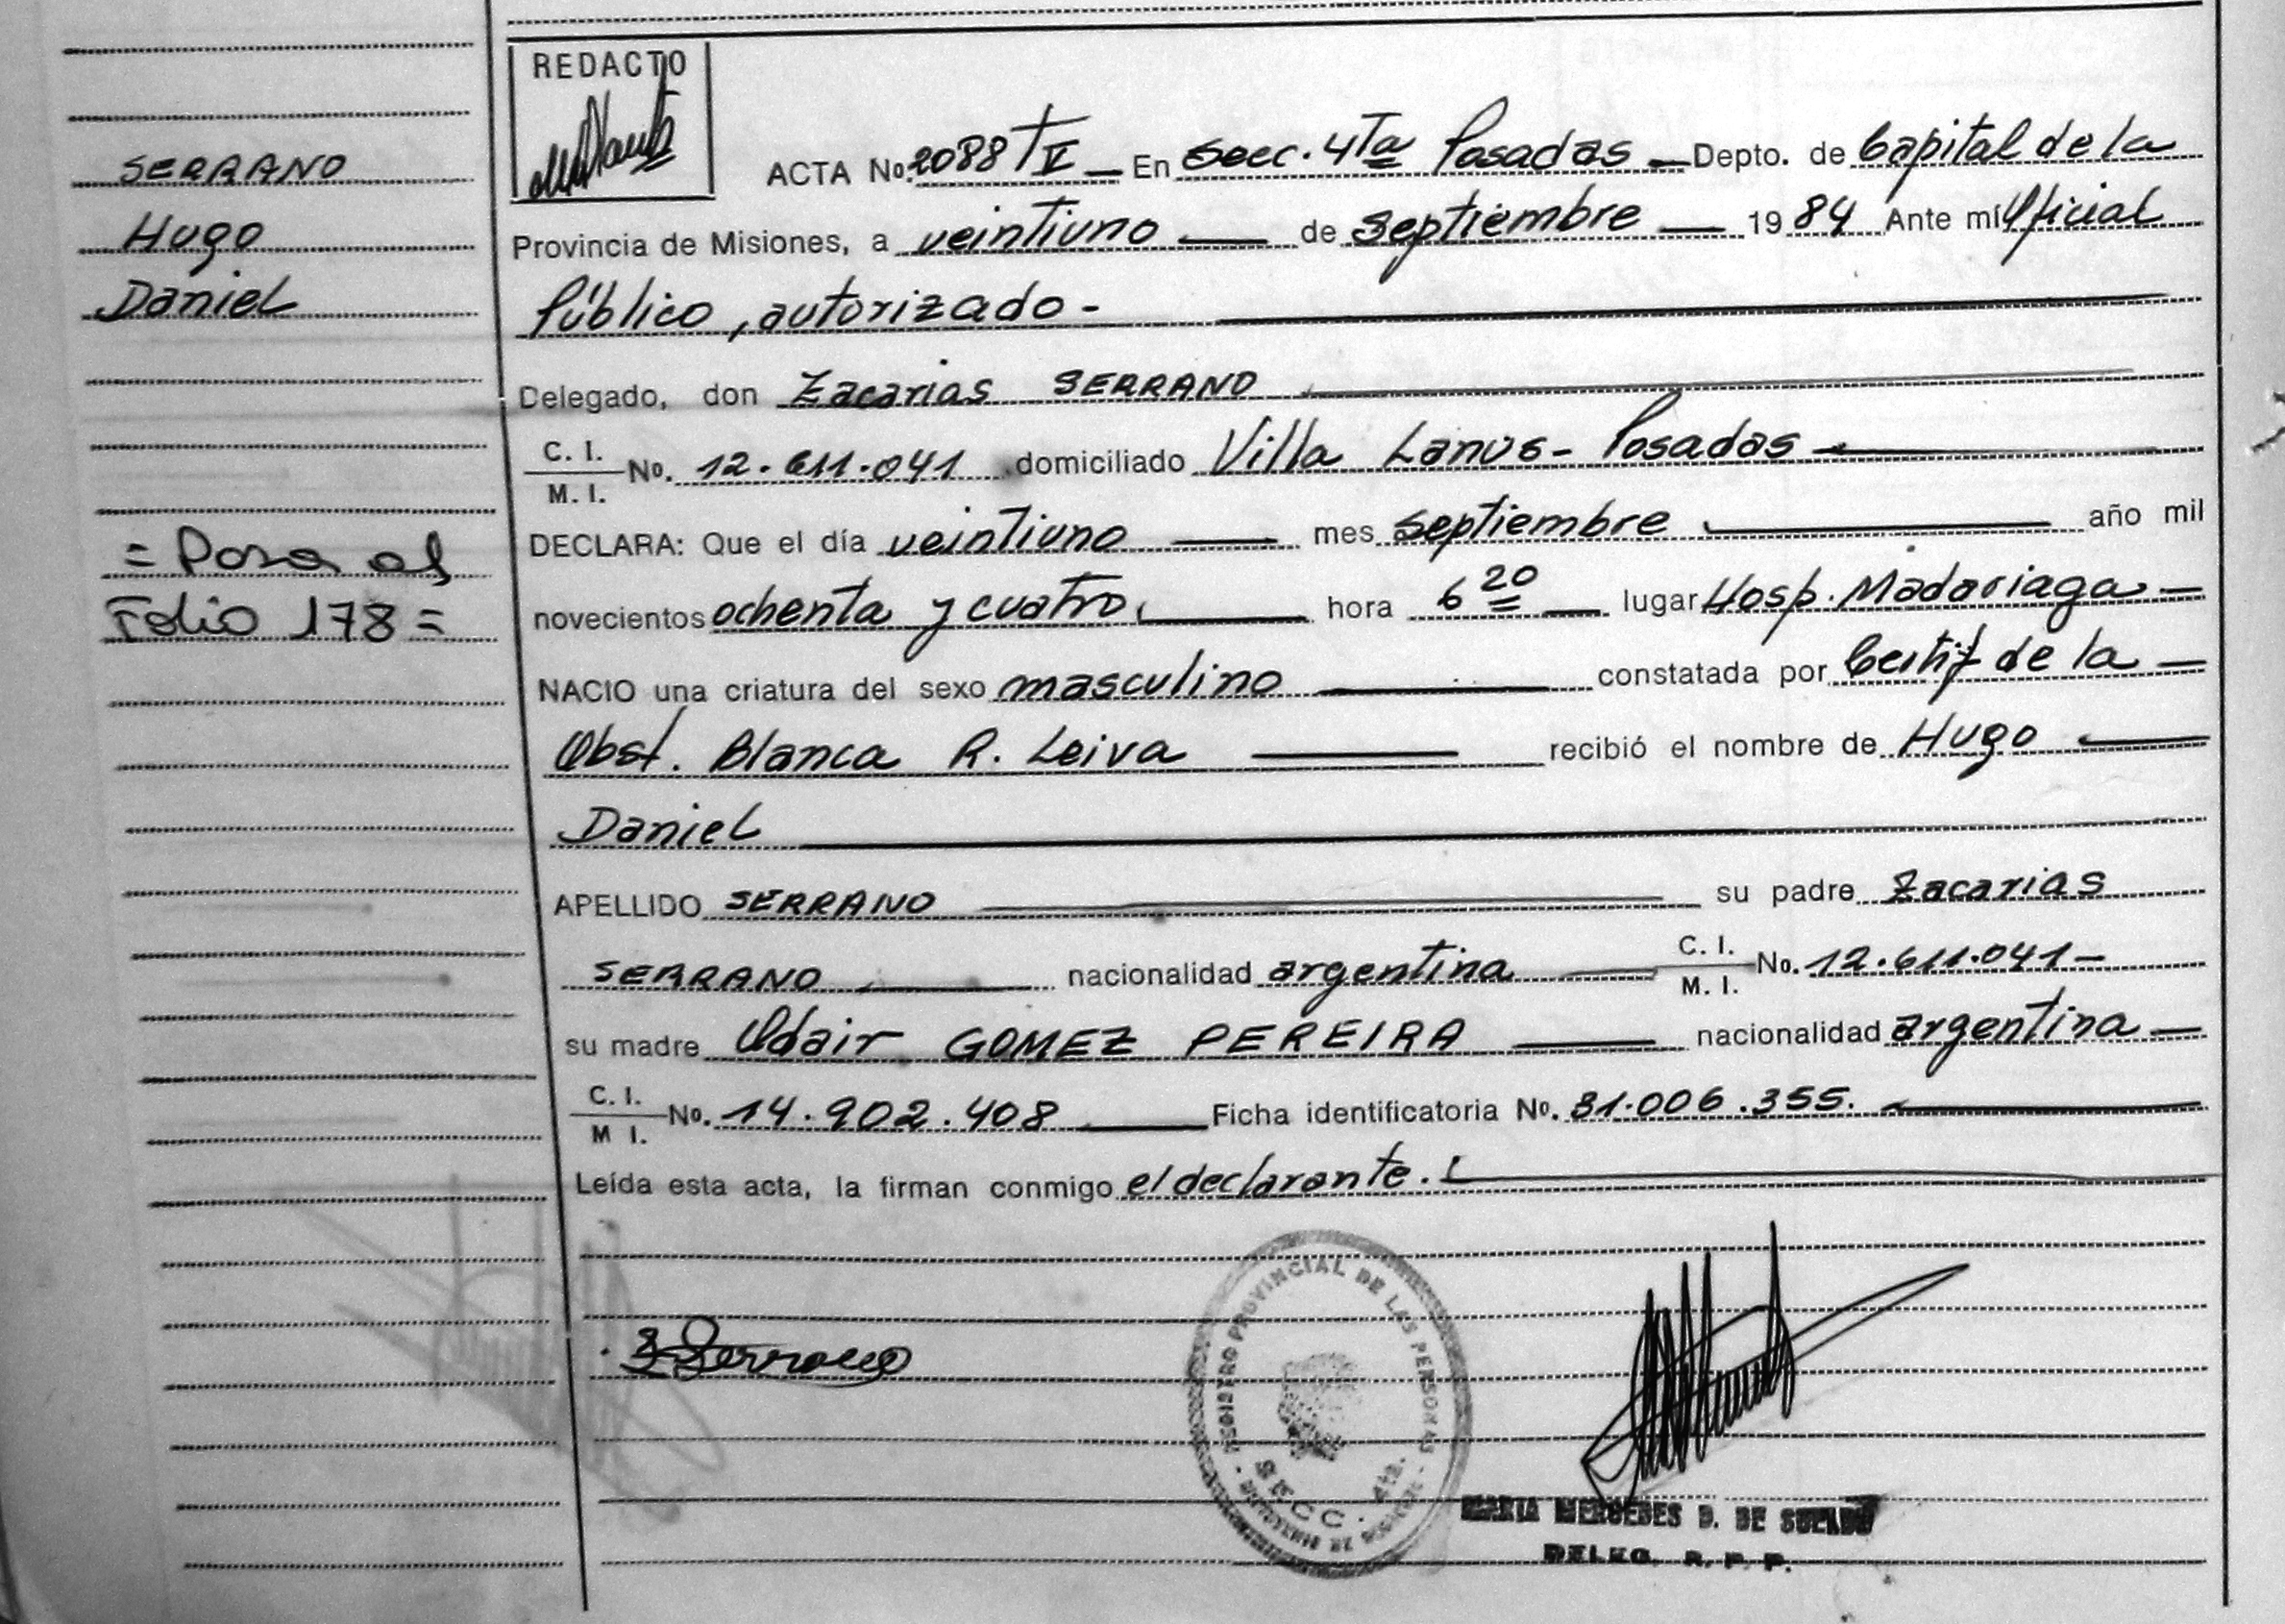 SERRANO
Hugo
Daniel
= Pasa al
Folio 178 =
REDACTO
ACTA No. 2088 T V — En Secc. 4Ta Posadas — Depto. de Capital de la
Provincia de Misiones, a veintiuno — de septiembre — 1984 Ante mí Oficial
Público, autorizado -
Delegado, don Zacarias SERRANO
C. I.
M. I. No. 12.611.041 domiciliado Villa Lanus - Posadas —
DECLARA: Que el día veintiuno — mes septiembre — año mil
novecientos ochenta y cuatro, — hora 6 20 — lugar Hosp. Madariaga —
NACIO una criatura del sexo masculino — constatada por Certif de la —
Obst. Blanca R. Leiva — recibió el nombre de Hugo —
Daniel
APELLIDO SERRANO — su padre Zacarias
SERRANO — nacionalidad argentina — C. I. M. I. No. 12.611.041 —
su madre Odair GOMEZ PEREIRA — nacionalidad argentina —
C. I.
M I. No. 14.902.408 — Ficha identificatoria No. 31.006.355. —
Leída esta acta, la firman conmigo el declarante.
Z Serrano
REGISTRO PROVINCIAL DE LAS PERSONAS
SECC. 4ta.
MARIA MERCEDES D. DE
DELEG. R. P. P.